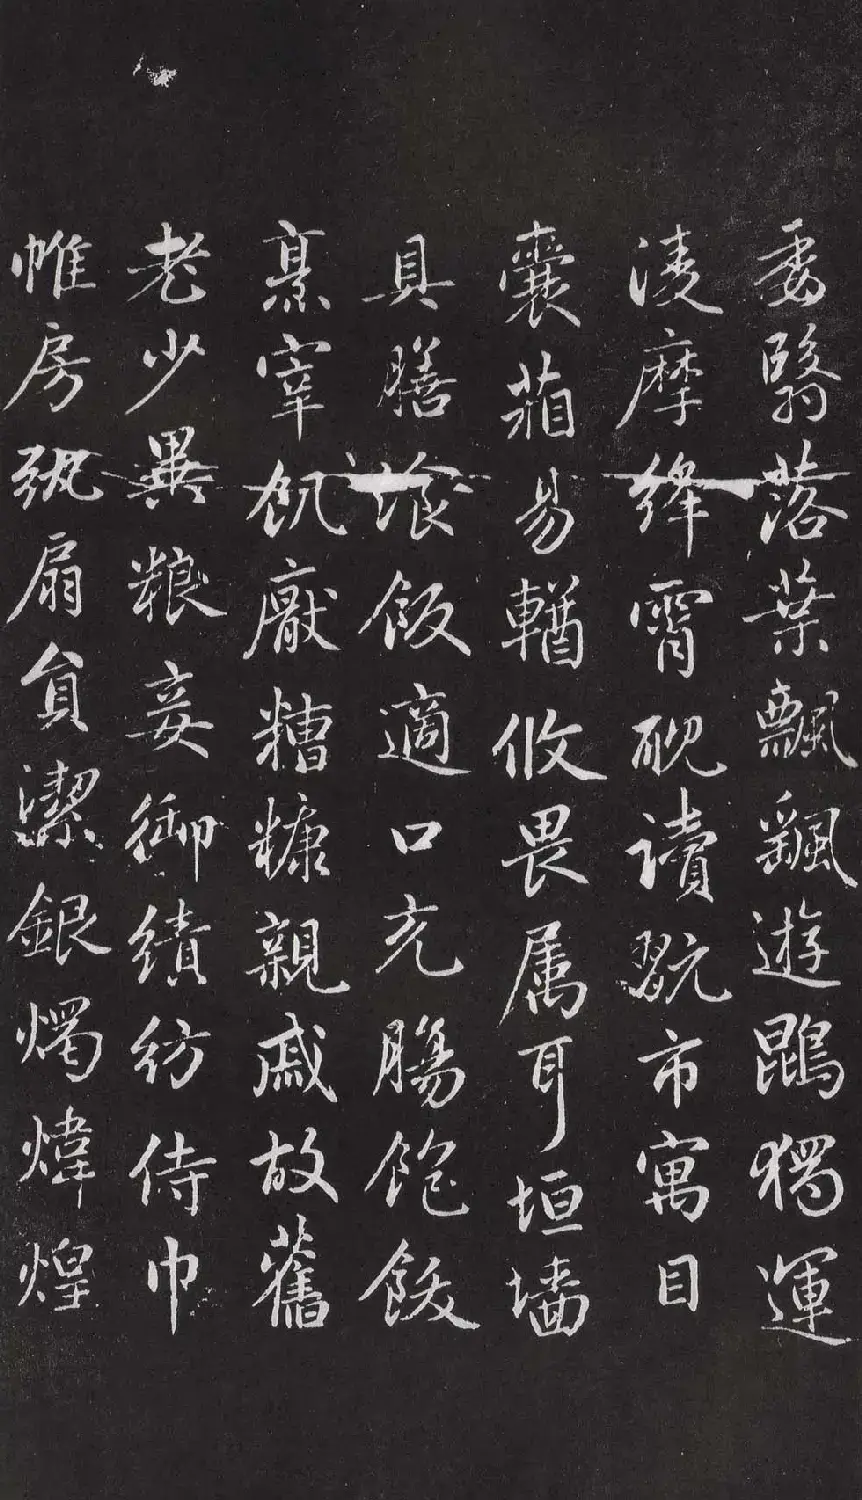 委翳落葉飄颻遊鵾獨運
淩摩絳霄耽讀翫市寓目
囊葙易輶攸畏属耳垣墻
具膳飡飯適口充膓飽飫
烹宰飢厭糟糠親戚故舊
老少異粮妾御績紡侍巾
帷房紈扇員潔銀燭煒煌